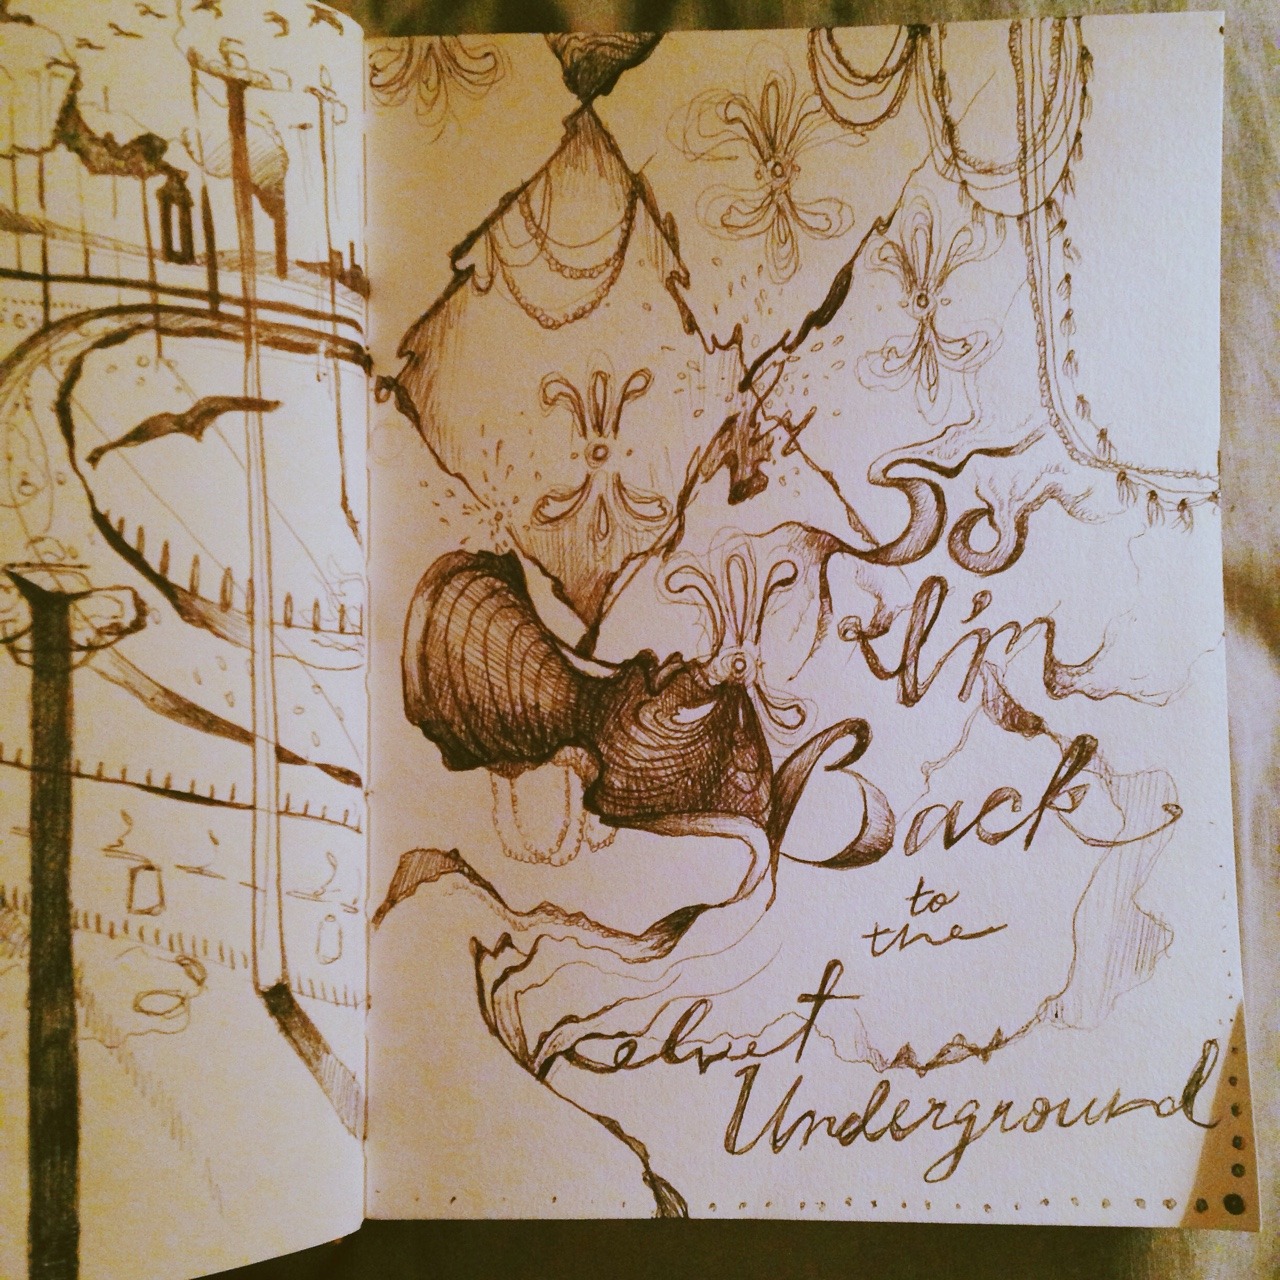 So
I'm
Back
to
the
Velvet
Underground